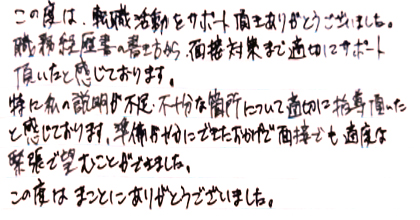 この度は、転職活動をサポート頂きありがとうございました。
職務経歴書の書き方から、面接対策まで適切にサポート
頂いたと感じております。
特に私の説明が不足、不十分な箇所について適切に指導頂いた
と感じております。準備も十分にできたおかげで面接でも適度な
緊張で望むことができました。
この度はまことにありがとうございました。